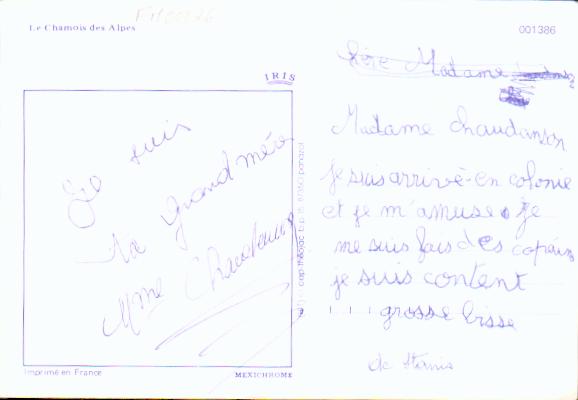 Le Chamois des Alpes
001386
IRIS
Je suis
la grand mère
Mme
Imprimé en France
MEXICHROME
cap-théojac b.p. 15 87350 panazol
chère Madame
Madame chaudanson
je suis arrivé en colonie
et je m'amuse je
me suis fais des copains
je suis content
grosse bisse
de Stanis